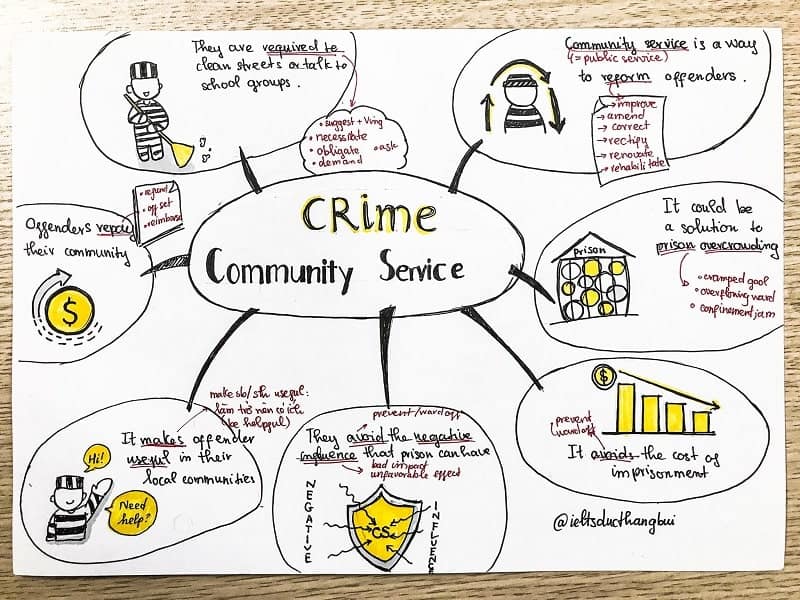 They are required to
clean streets or talk to
school groups.
• suggest + Ving
• necessitate
• obligate • ask
• demand
Community service is a way
(= public service)
to reform offenders.
→ improve
→ amend
→ correct
→ rectify
→ renovate
→ rehabilitate
• refund
• offset
• reimburse
Offenders repay
their community
$
CRime
Community Service
It could be
a solution to
prison overcrowding
prison
• cramped gaol
• overflowing ward
• confinement jam
make sb/sth useful:
làm trở nên có ích
(be helpful)
It makes offender
useful in their
local communities
Hi!
Need
help?
prevent/ward off
They avoid the negative
influence that prison can have
bad impact
unfavorable effect
NEGATIVE
CS
INFLUENCE
$
prevent
ward off
It avoids the cost of
imprisonment
@ieltsducthangbui